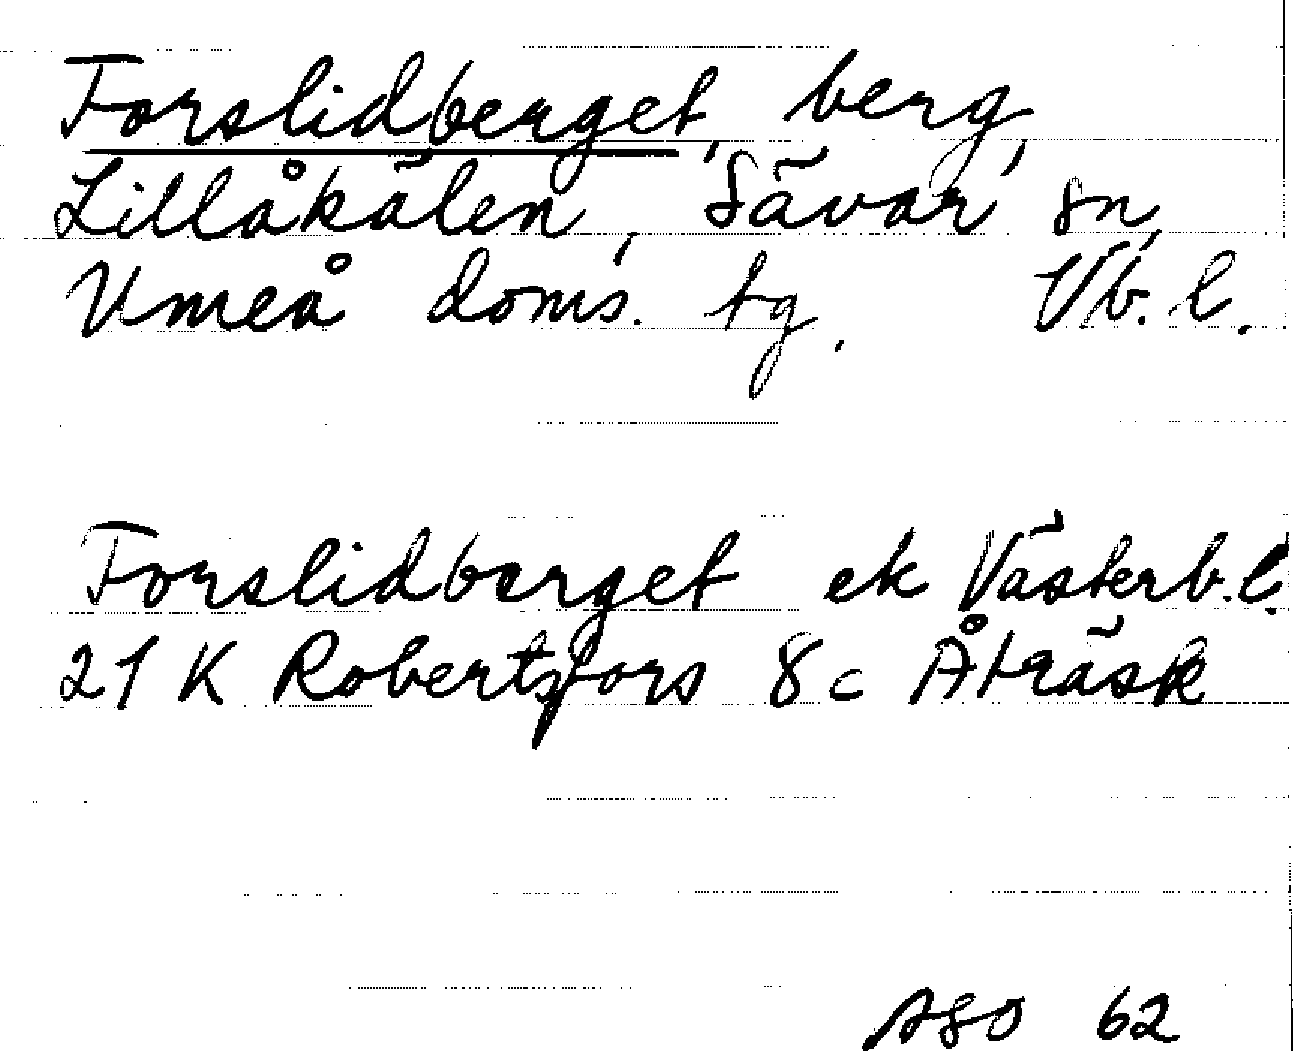 Forslidberget, berg,
Lillåkälen, Sävar sn,
Umeå doms. tg. Vb. l.
Forslidberget ek Västerb. l.
21 K Robertsfors 8 c Åträsk
ASO 62